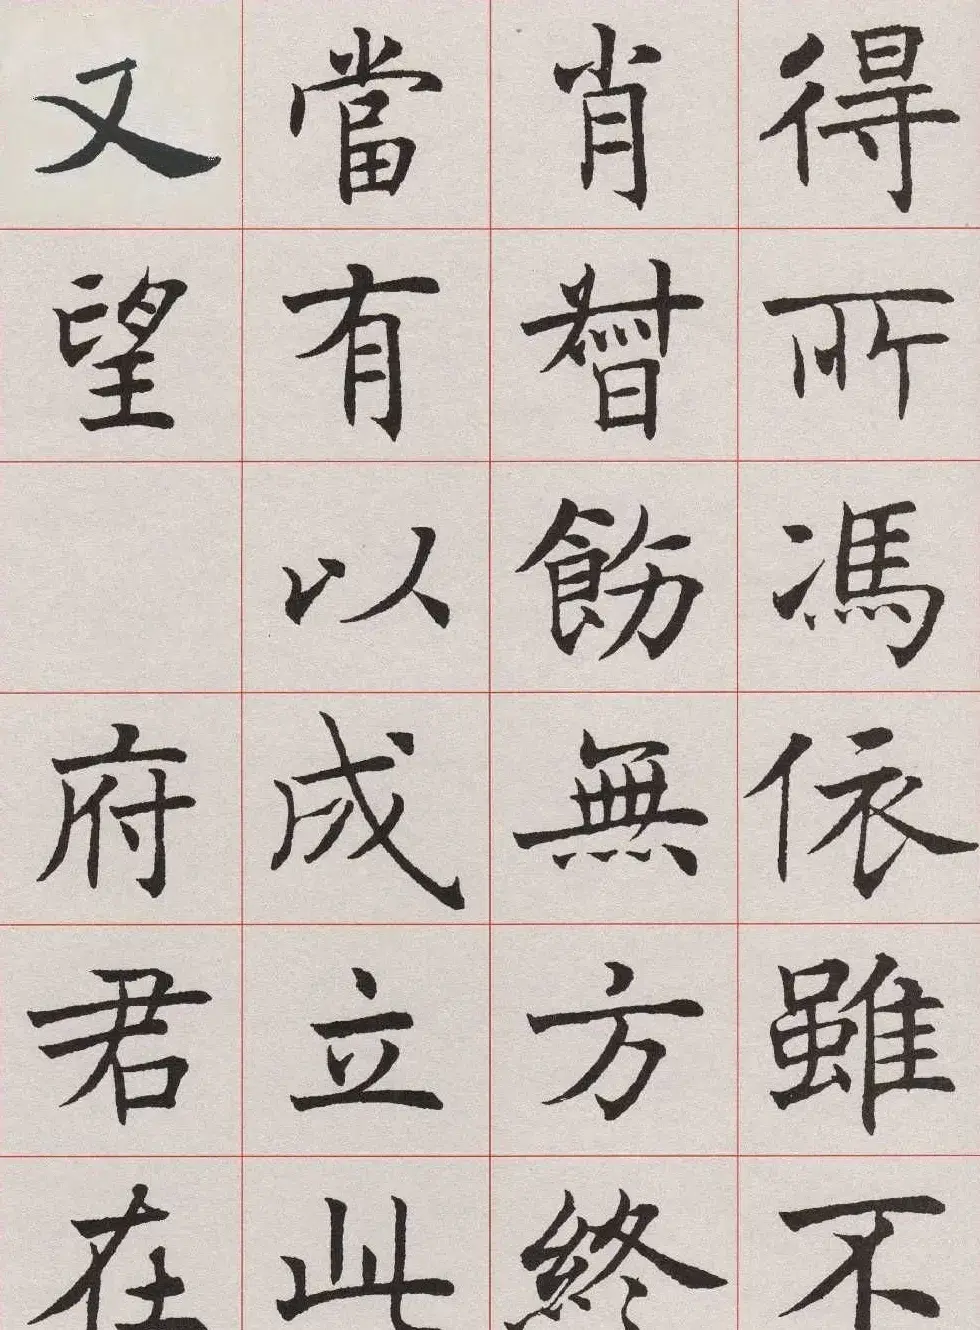 得所馮依雖不
肖督飭無方終
當有以成立此
又望府君在